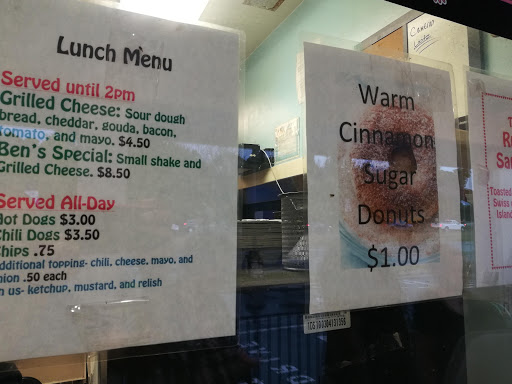 Lunch Menu
Served until 2pm
Grilled Cheese: Sour dough
bread, cheddar, gouda, bacon,
tomato, and mayo. $4.50
Ben's Special: Small shake and
Grilled Cheese. $8.50
Served All-Day
Hot Dogs $3.00
Chili Dogs $3.50
Chips .75
additional topping- chili, cheese, mayo, and
onion .50 each
on us- ketchup, mustard, and relish
Warm
Cinnamon
Sugar
Donuts
$1.00
Toasted
Swiss
Island